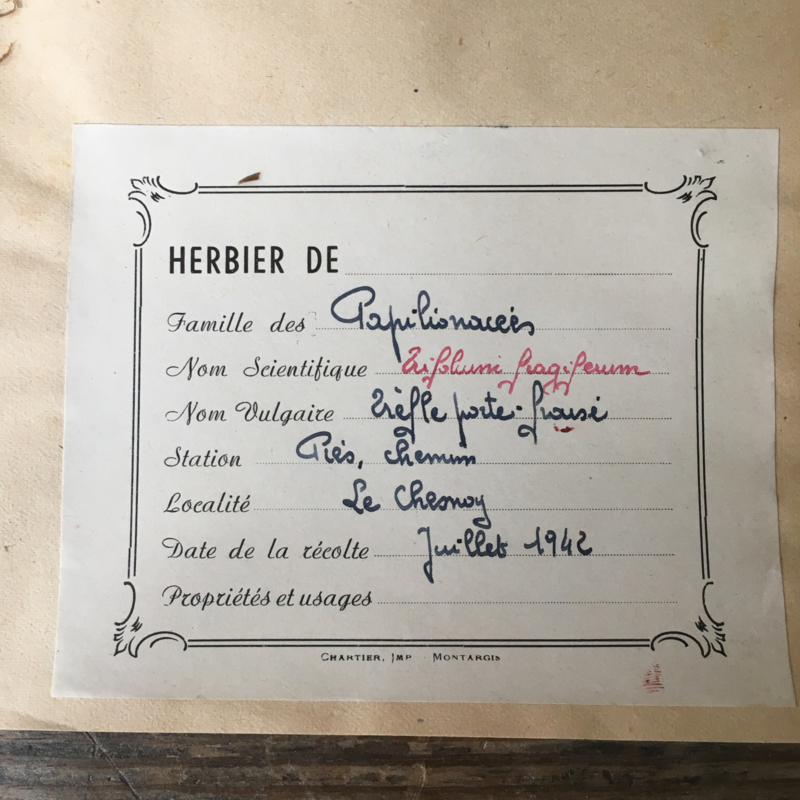 HERBIER DE
Famille des Papilionacées
Nom Scientifique Trifolium fragiferum
Nom Vulgaire Trèfle porte-fraise
Station Prés, chemins
Localité Le Chesnoy
Date de la récolte Juillet 1942
Propriétés et usages
CHARTIER, IMP MONTARGIS